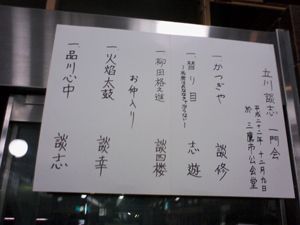 立川 談志 一門会
平成二十二年 十二月九日
於 三鷹市公会堂
一 かつぎや 談修
一 替り目 志遊
一 柳田格之進 談四楼
お仲入り
一 火焔太鼓 談幸
一 品川心中 談志